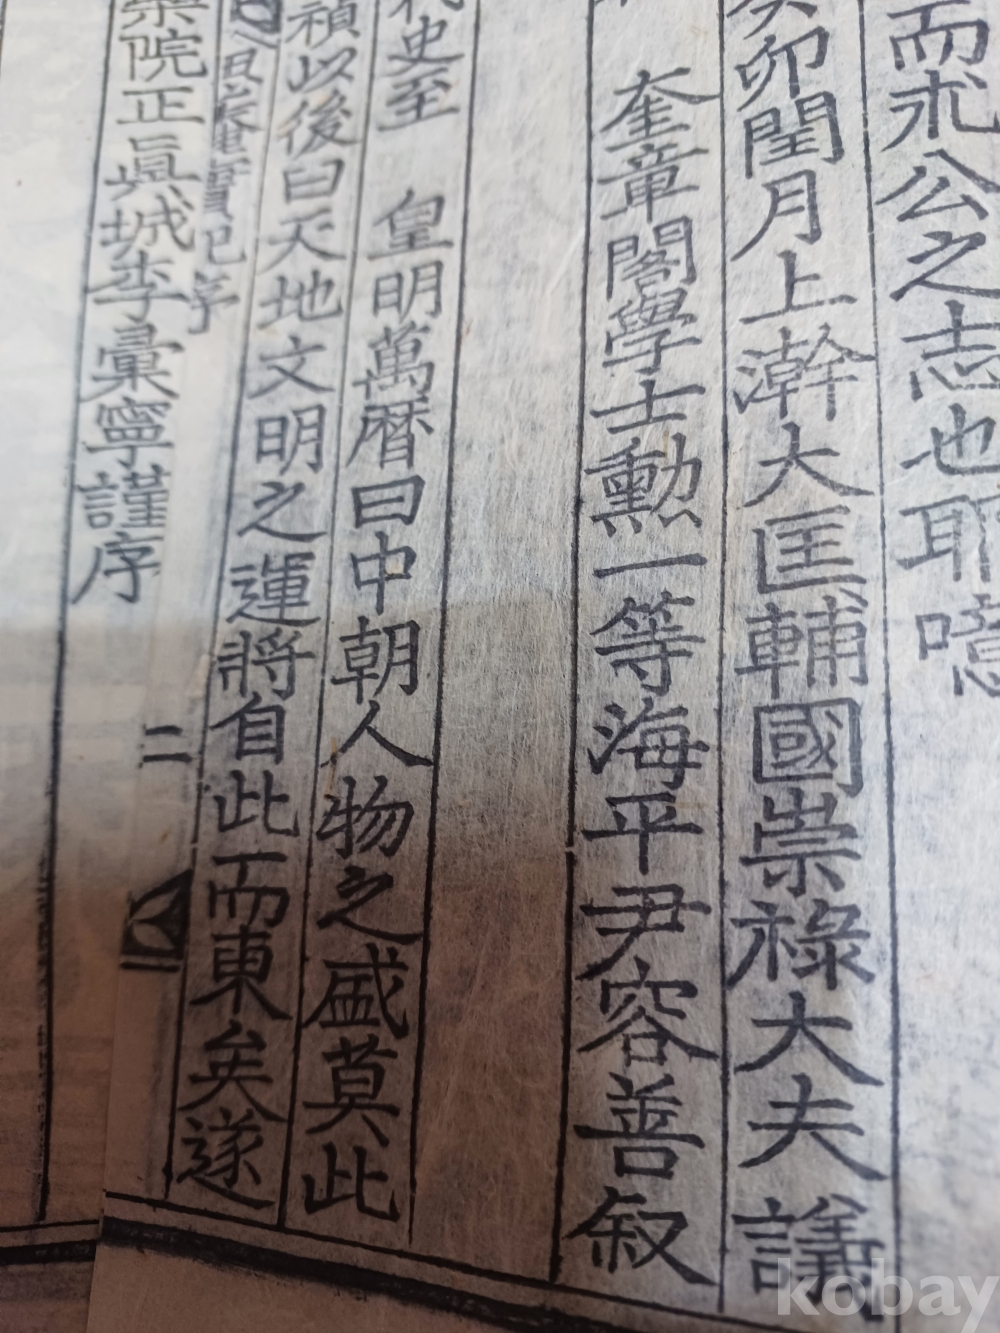 而求公之志也耶噫
癸卯閏月上澣大匡輔國崇祿大夫議
奎章閣學士勳一等海平尹容善叙
代史至 皇明萬曆曰中朝人物之盛莫此
禎以後曰天地文明之運將自此而東矣遂
實記序
二
院正眞城李彙寧謹序
kobay